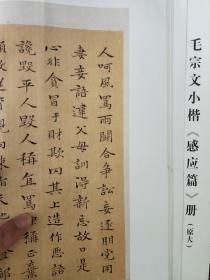 毛宗文小楷《感应篇》册（原大）
人呵風罵雨鬪合爭訟妄逐朋黨用
妻妾語違父母訓得新忘故口是
心非貪冒于財欺罔其上造作惡語
讒毀平人毀人稱直罵 稱正棄